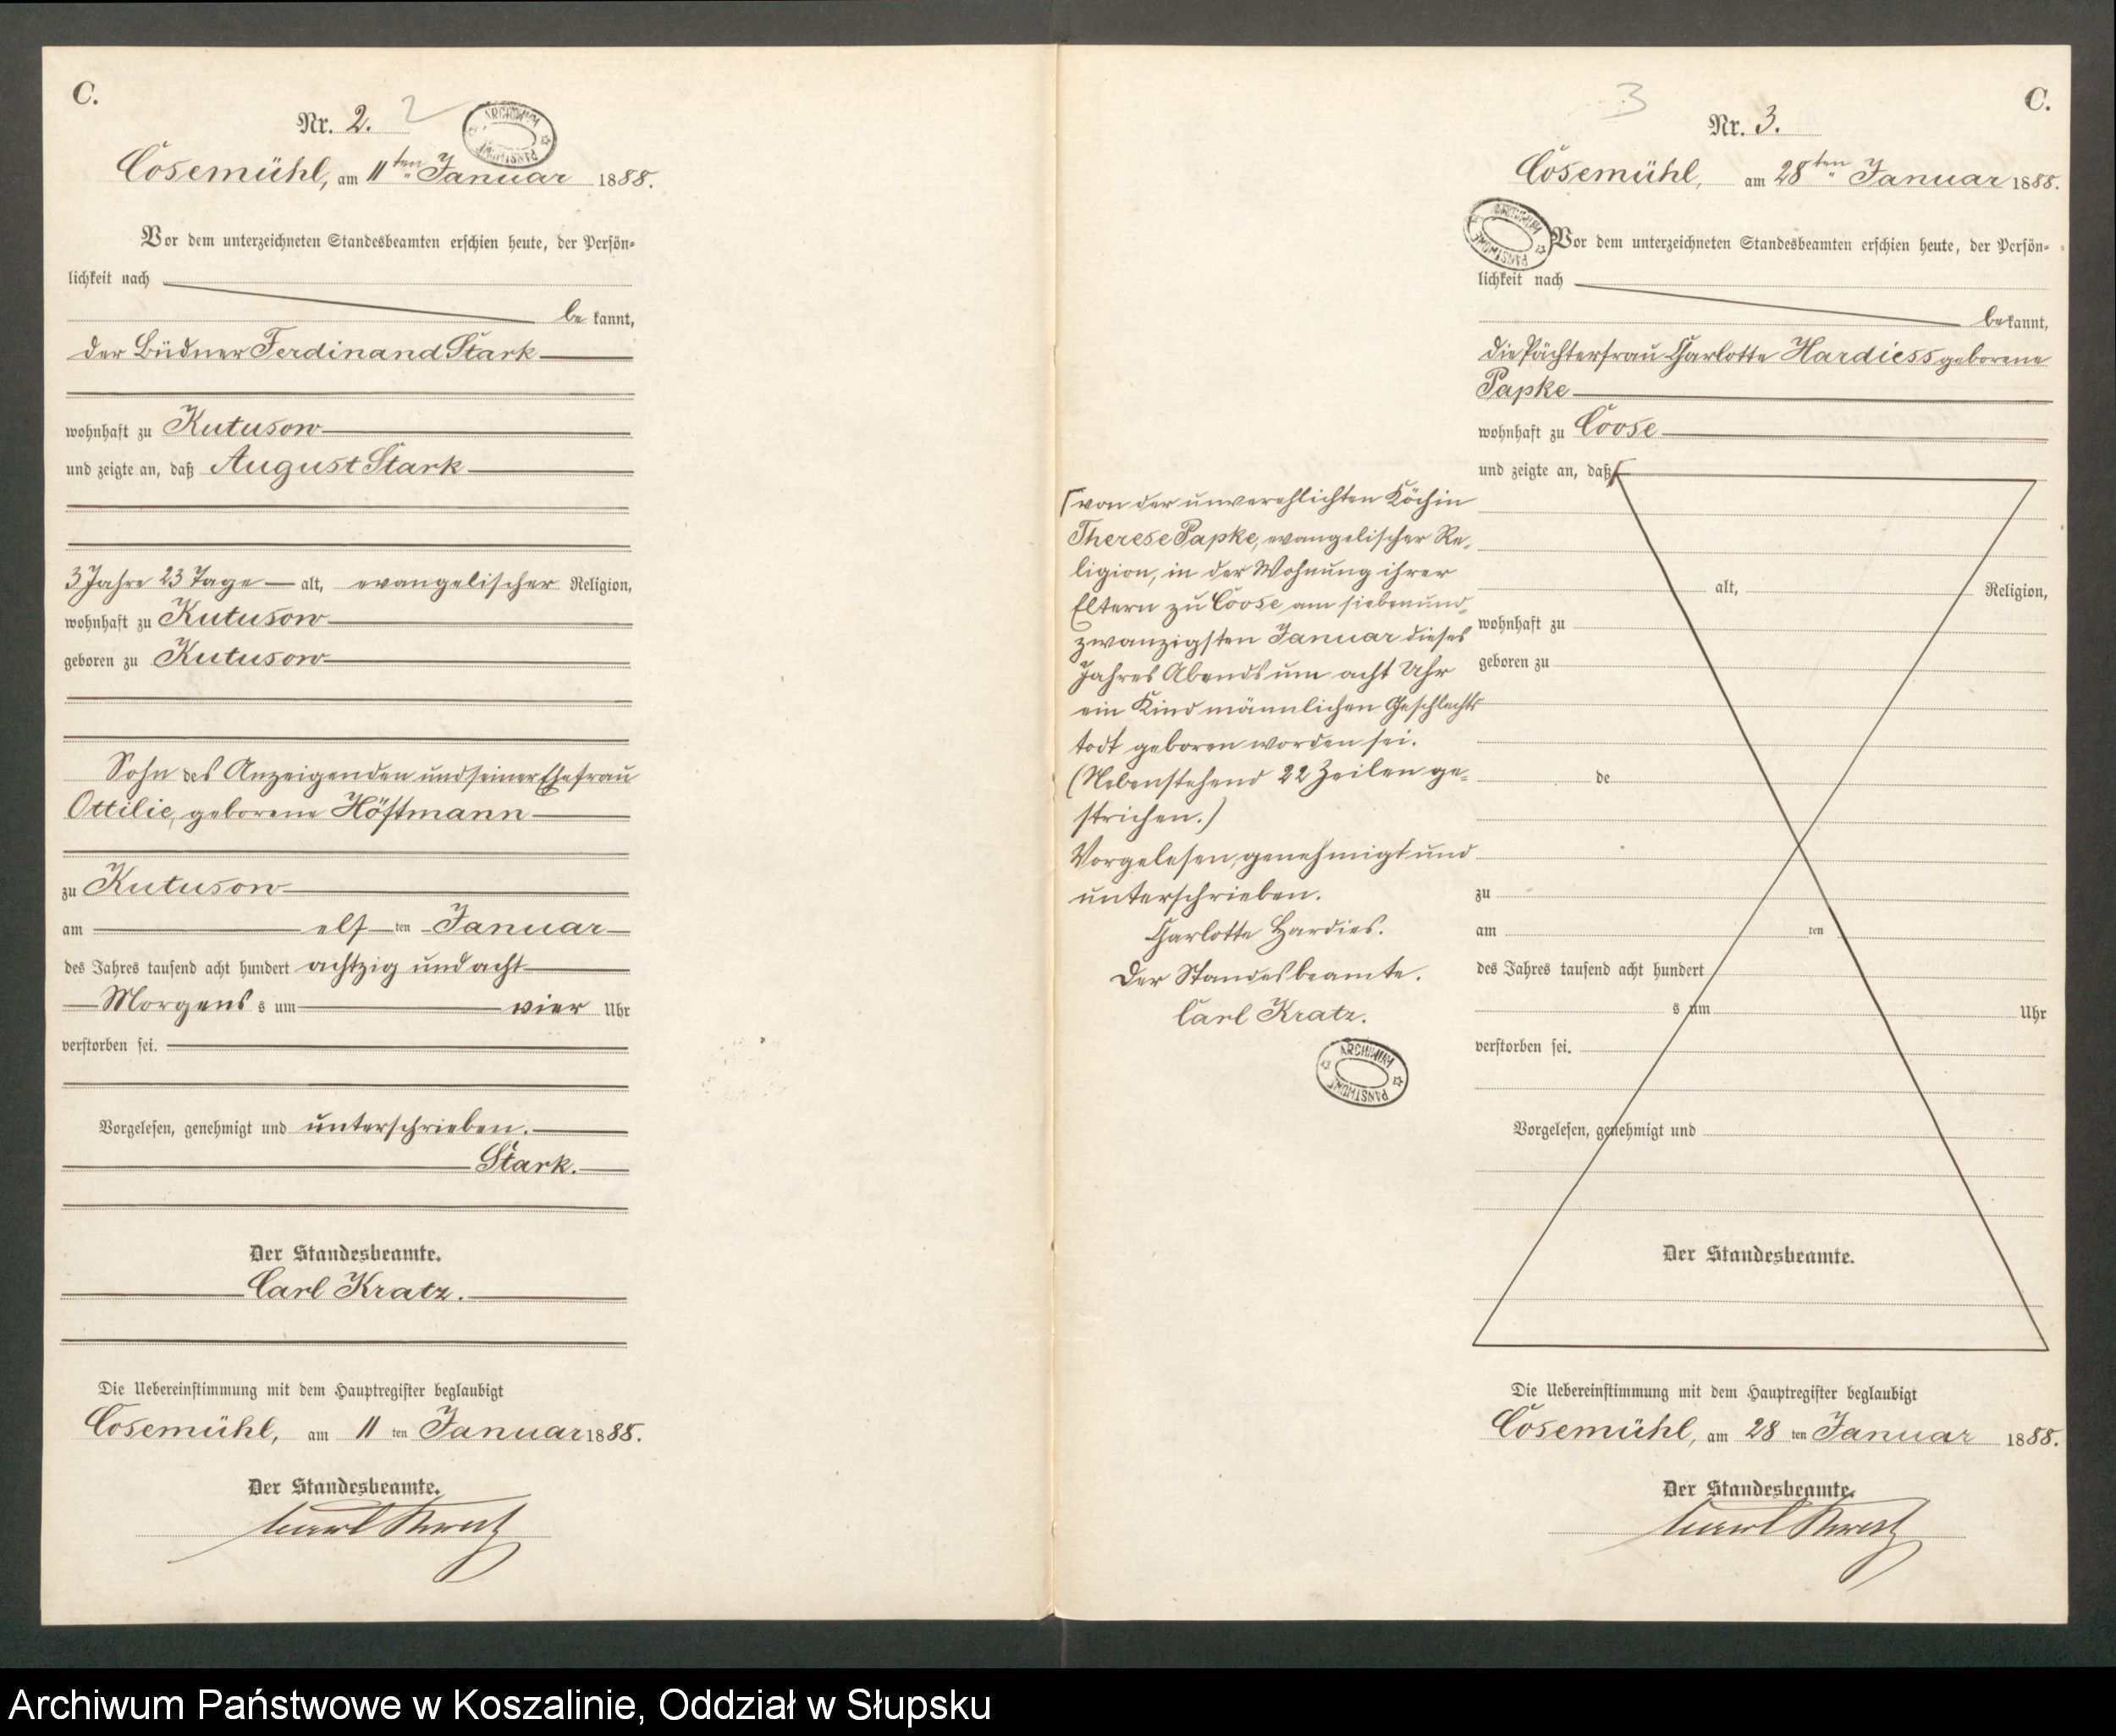 C.
Nr. 2.
2
ARCHIWUM PAŃSTWOWE
Cosemühl, am 11ten Januar 1888.
Vor dem unterzeichneten Standesbeamten erschien heute, der Persön-
lichkeit nach
bekannt,
der Büdner Ferdinand Stark
wohnhaft zu Kutusow
und zeigte an, daß August Stark
3 Jahre 23 Tage alt, evangelischer Religion,
wohnhaft zu Kutusow
geboren zu Kutusow
Sohn des Anzeigenden und seiner Ehefrau
Ottilie, geborene Höftmann
zu Kutusow
am elften Januar
des Jahres tausend acht hundert achtzig und acht
Morgens s um vier Uhr
verstorben sei.
Vorgelesen, genehmigt und unterschrieben.
Stark.
Der Standesbeamte.
Carl Kratz.
Die Uebereinstimmung mit dem Hauptregister beglaubigt
Cosemühl, am 11 ten Januar 1888.
Der Standesbeamte.
Carl Kratz
C.
3
Nr. 3.
Cosemühl, am 28ten Januar 1888.
ARCHIWUM PAŃSTWOWE
Vor dem unterzeichneten Standesbeamten erschien heute, der Persön-
lichkeit nach
bekannt,
die Pächterfrau Charlotte Hardiess geborene
Papke
wohnhaft zu Coose
und zeigte an, daß
alt, Religion,
wohnhaft zu
geboren zu
de
zu
am ten
des Jahres tausend acht hundert
s um Uhr
verstorben sei.
Vorgelesen, genehmigt und
Der Standesbeamte.
von der unverehlichten Köchin
Therese Papke, evangelischer Re-
ligion, in der Wohnung ihrer
Eltern zu Coose am siebenund-
zwanzigsten Januar dieses
Jahres Abends um acht Uhr
ein Kind männlichen Geschlechts
todt geboren worden sei.
(Nebenstehend 22 Zeilen ge-
strichen.)
Vorgelesen, genehmigt und
unterschrieben.
Charlotte Hardies.
Der Standesbeamte.
Carl Kratz.
ARCHIWUM PAŃSTWOWE
Die Uebereinstimmung mit dem Hauptregister beglaubigt
Cosemühl, am 28 ten Januar 1888.
Der Standesbeamte.
Carl Kratz
Archiwum Państwowe w Koszalinie, Oddział w Słupsku